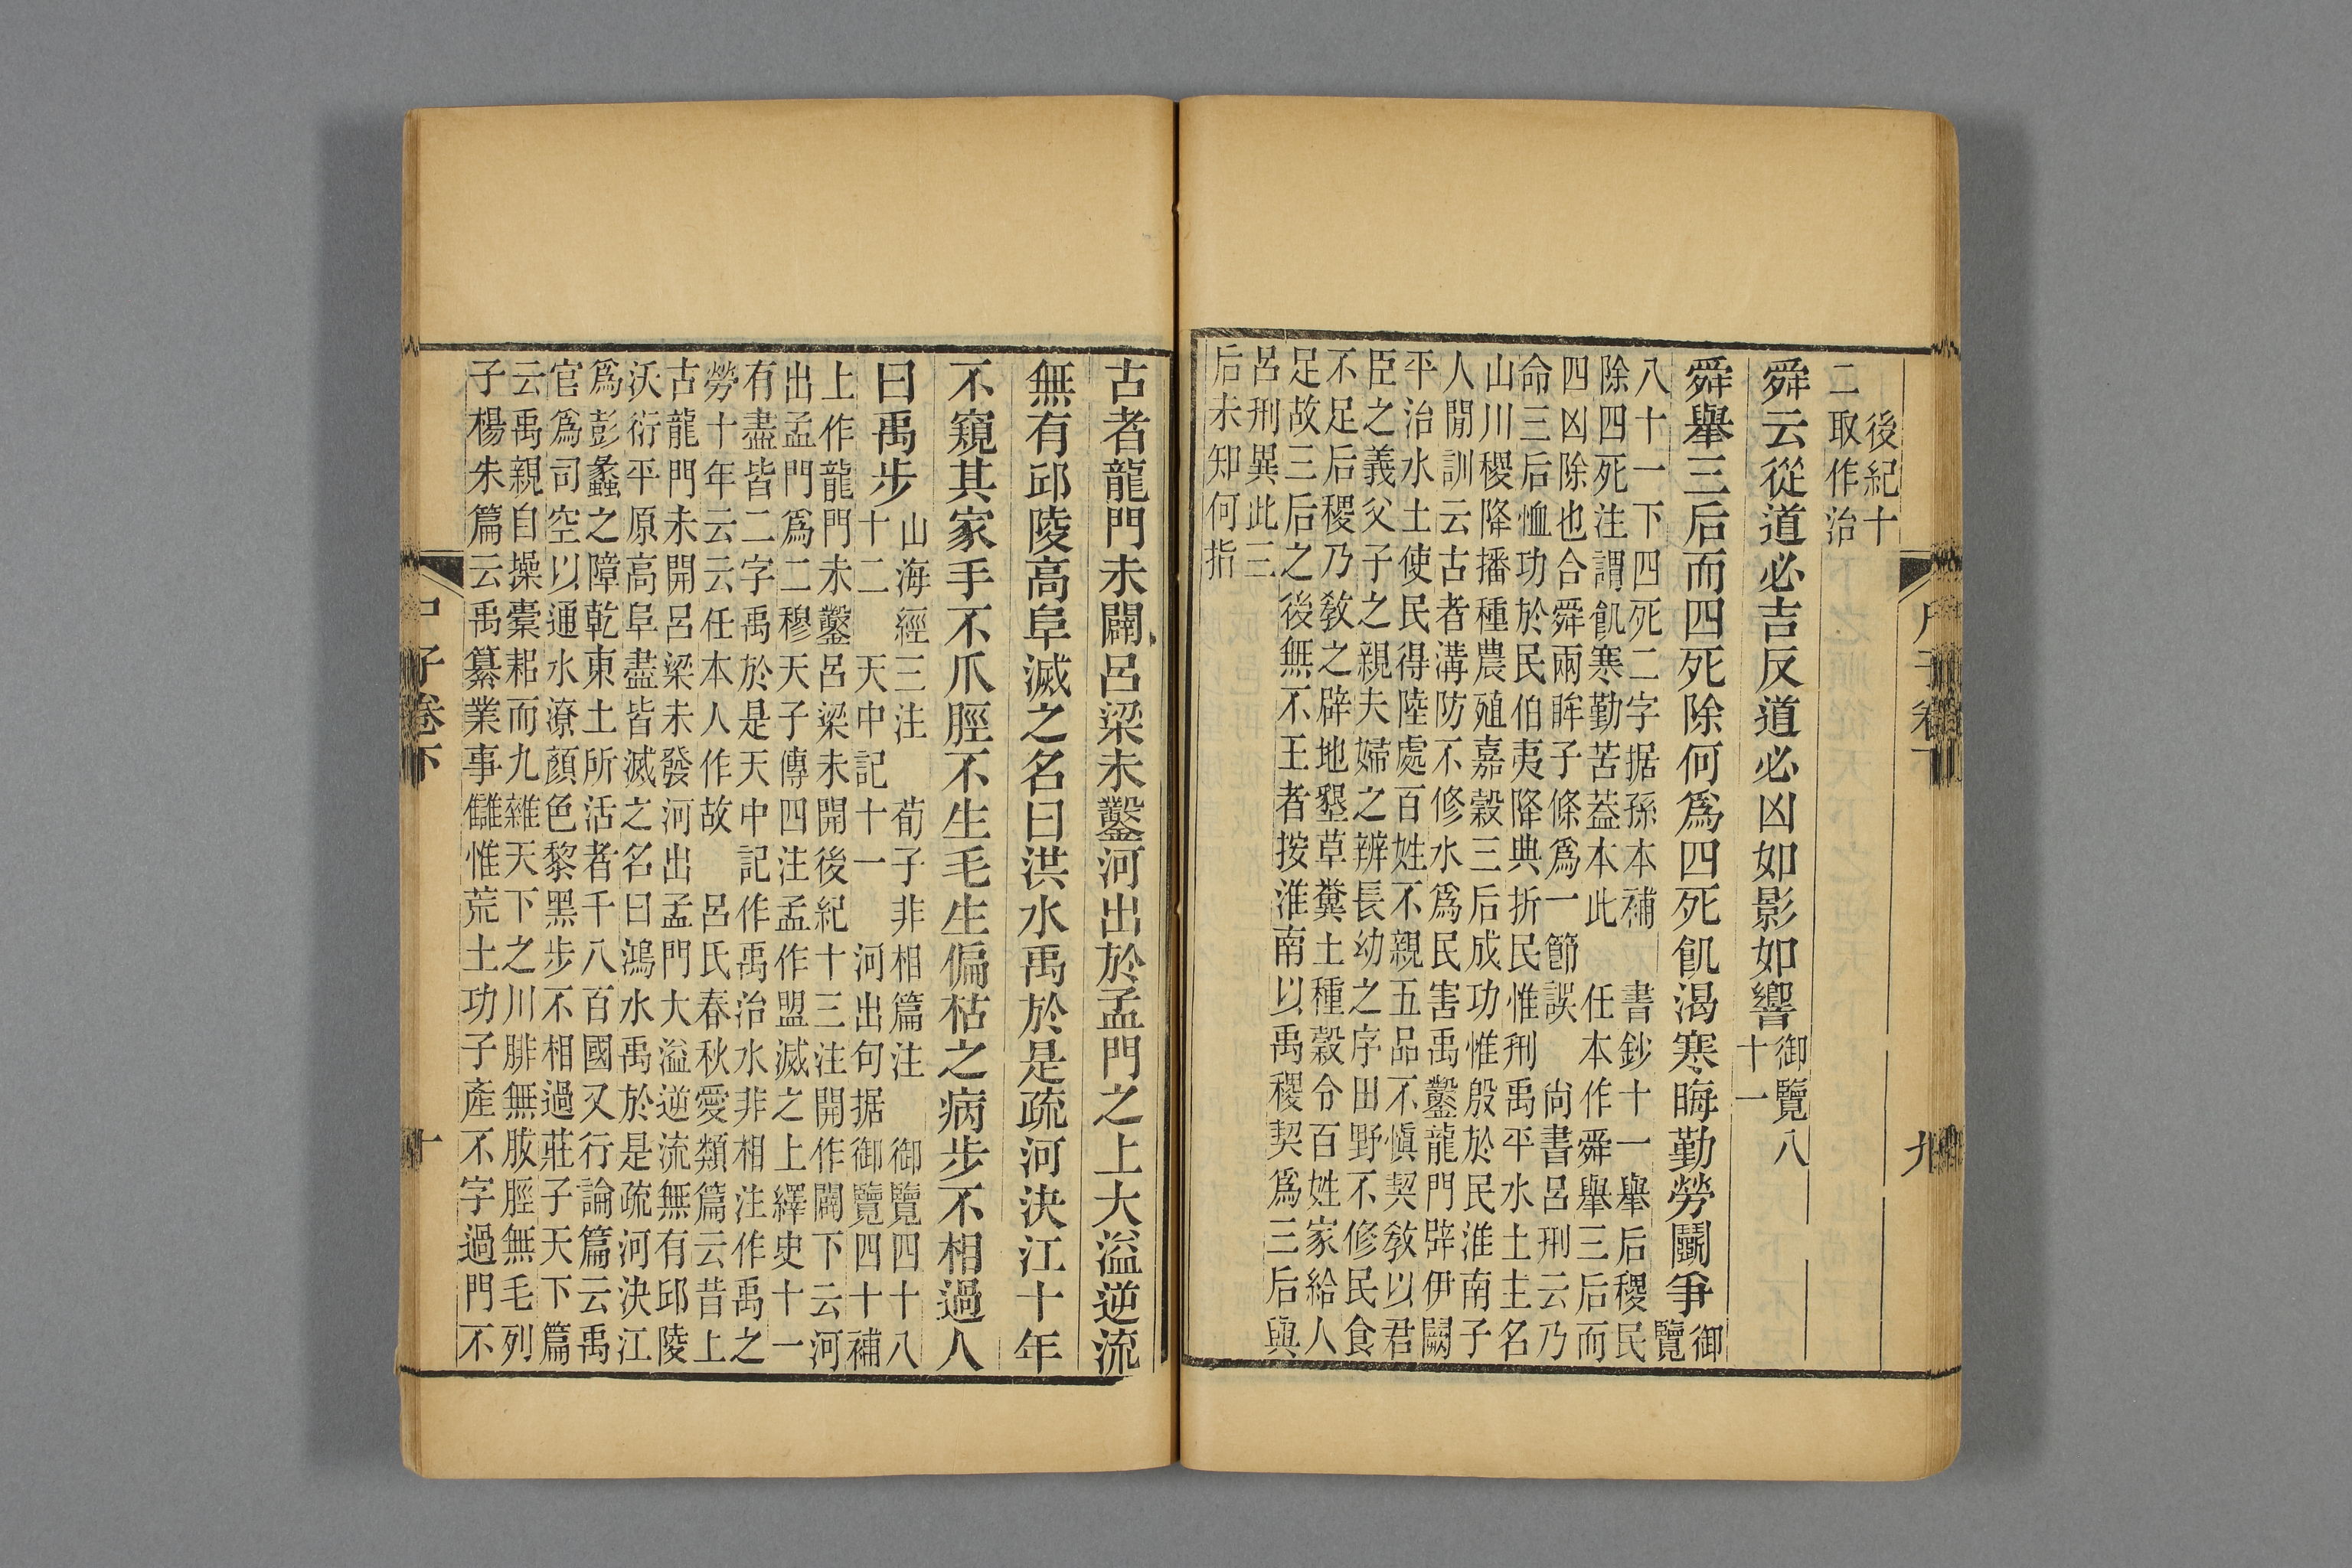 後紀十
二取作治
舜云從道必吉反道必凶如影如響御覽八
十一
舜舉三后而四死除何爲四死飢渴寒暍勤勞鬭爭御
覽
八十一下四死二字据孫本補 書鈔十一舉后稷民
除四死注謂飢寒勤苦蓋本此 任本作舜舉三后而
四凶除也合舜兩眸子條爲一節誤 尚書呂刑云乃
命三后恤功於民伯夷降典折民惟刑禹平水土主名
山川稷降播種農殖嘉穀三后成功惟殷於民淮南子
人閒訓云古者溝防不修水爲民害禹鑿龍門辟伊闕
平治水土使民得陸處百姓不親五品不愼契敎以君
臣之義父子之親夫婦之辨長幼之序田野不修民食
不足后稷乃敎之辟地墾草糞土種穀令百姓家給人
足故三后之後無不王者按淮南以禹稷契爲三后與
呂刑異此三
后未知何指
古者龍門未闢呂梁未鑿河出於孟門之上大溢逆流
無有邱陵高阜滅之名曰洪水禹於是疏河決江十年
不窺其家手不爪脛不生毛生偏枯之病步不相過人
曰禹步山海經三注 荀子非相篇注 御覽四十八
十二 天中記十一 河出句据御覽四十補
上作龍門未鑿呂梁未開後紀十三注開作闢下云河
出孟門爲二穆天子傳四注孟作盟滅之上繹史十一
有盡皆二字禹於是天中記作禹治水非相注作禹之
勞十年云云任本人作故 呂氏春秋愛類篇云昔上
古龍門未開呂梁未發河出孟門大溢逆流無有邱陵
沃衍平原高阜盡皆滅之名曰鴻水禹於是疏河決江
爲彭蠡之障乾東土所活者千八百國又行論篇云禹
官爲司空以通水潦顏色黎黑步不相過莊子天下篇
云禹親自操橐耜而九雜天下之川腓無胈脛無毛列
子楊朱篇云禹纂業事讎惟荒土功子產不字過門不
尸子卷下
九
尸子卷下
十